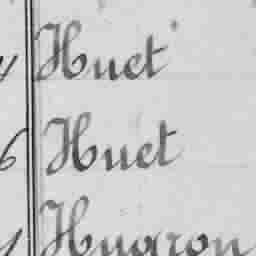 Huet
6 Huet
Hugron